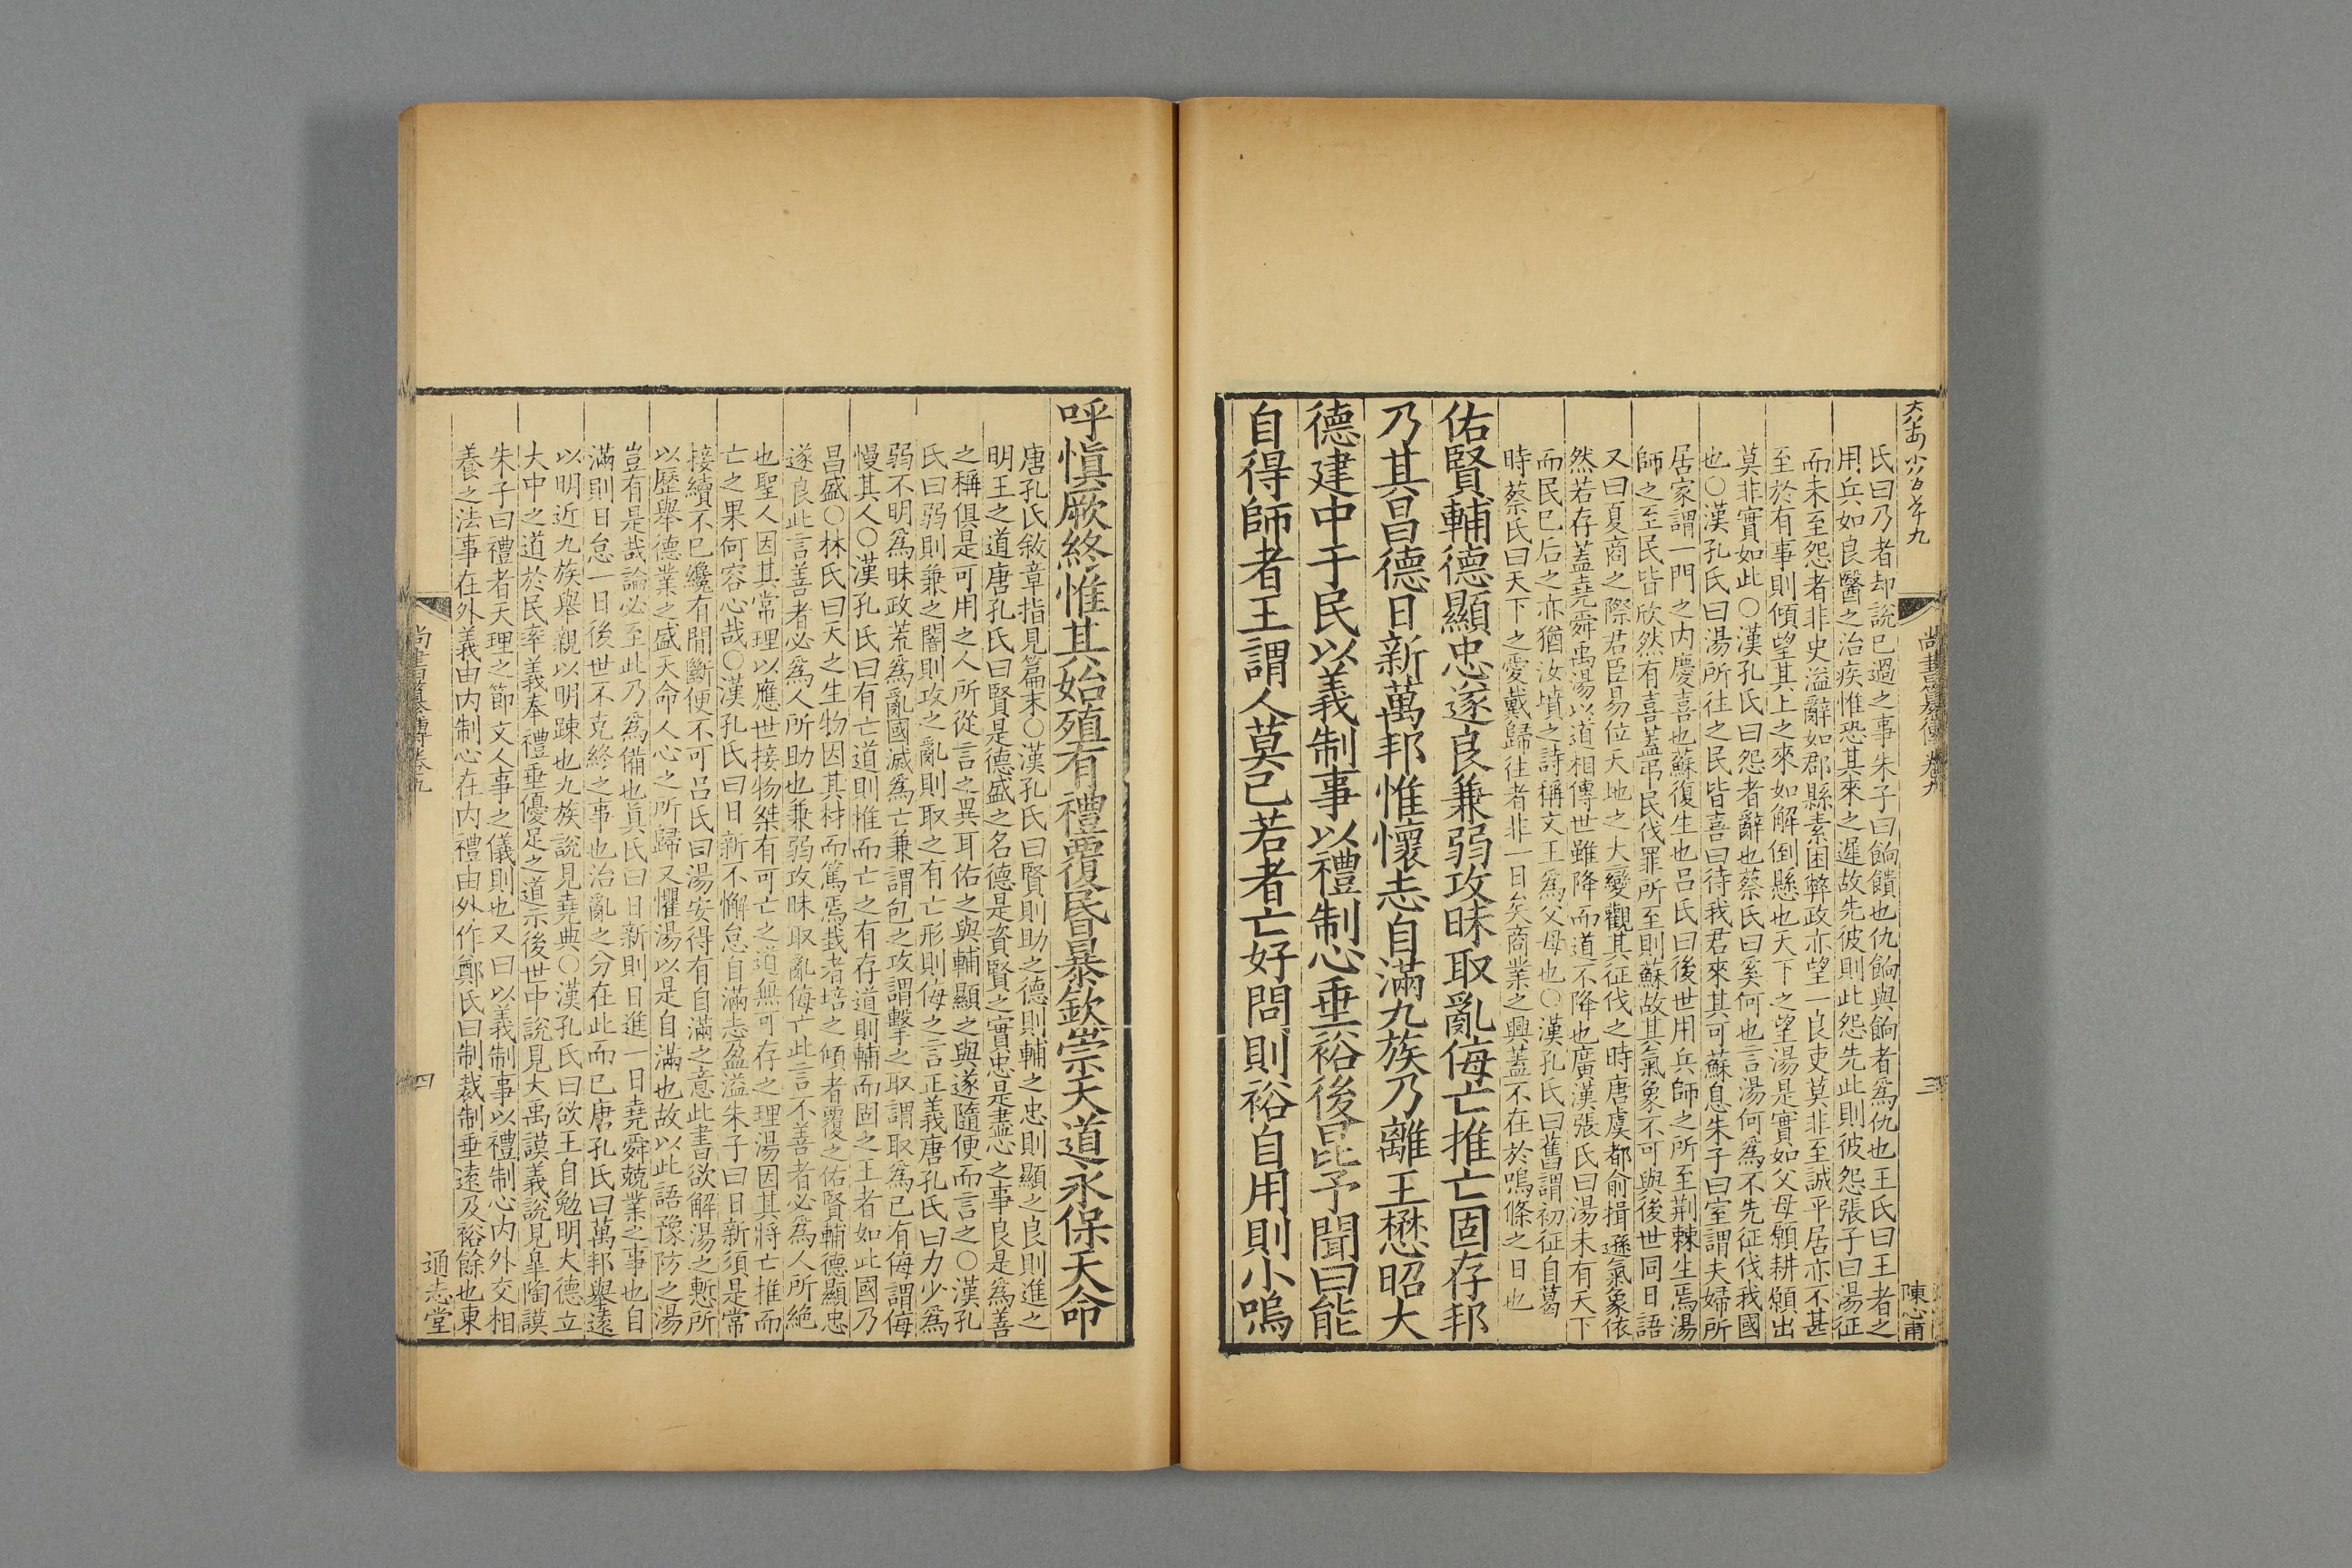 尚書纂傳卷九
三
陳心甫
氏曰乃者却說已過之事朱子曰餉饋也仇餉與餉者爲仇也王氏曰王者之
用兵如良醫之治疾惟恐其來之遲故先彼則此怨先此則彼怨張子曰湯征
而未至怨者非史溢辭如郡縣素困弊政亦望一良吏莫非至誠平居亦不甚
至於有事則傾望其上之來如解倒懸也天下之望湯是實如父母願耕願出
莫非實如此○漢孔氏曰怨者辭也蔡氏曰奚何也言湯何爲不先征伐我國
也○漢孔氏曰湯所往之民皆喜曰待我君來其可蘇息朱子曰室謂夫婦所
居家謂一門之内慶喜也蘇復生也呂氏曰後世用兵師之所至荆棘生焉湯
師之至民皆欣然有喜蓋弔民伐罪所至則蘇故其氣象不可與後世同日語
又曰夏商之際君臣易位天地之大變觀其征伐之時唐虞都俞揖遜氣象依
然若存蓋堯舜禹湯以道相傳世雖降而道不降也廣漢張氏曰湯未有天下
而民已后之亦猶汝墳之詩稱文王爲父母也○漢孔氏曰舊謂初征自葛
時蔡氏曰天下之愛戴歸往者非一日矣商業之興蓋不在於鳴條之日也
佑賢輔德顯忠遂良兼弱攻昧取亂侮亡推亡固存邦
乃其昌德日新萬邦惟懷志自滿九族乃離王懋昭大
德建中于民以義制事以禮制心垂裕後昆予聞曰能
自得師者王謂人莫己若者亡好問則裕自用則小嗚
呼愼厥終惟其始殖有禮覆昏暴欽崇天道永保天命
唐孔氏敘章指見篇末○漢孔氏曰賢則助之德則輔之忠則顯之良則進之
明王之道唐孔氏曰賢是德盛之名德是資賢之實忠是盡心之事良是爲善
之稱俱是可用之人所從言之異耳佑之與輔顯之與遂隨便而言之○漢孔
氏曰弱則兼之闇則攻之亂則取之有亡形則侮之言正義唐孔氏曰力少爲
弱不明爲昧政荒爲亂國滅爲亡兼謂包之攻謂擊之取謂取爲己有侮謂侮
慢其人○漢孔氏曰有亡道則推而亡之有存道則輔而固之王者如此國乃
昌盛○林氏曰天之生物因其材而篤焉栽者培之傾者覆之佑賢輔德顯忠
遂良此言善者必爲人所助也兼弱攻昧取亂侮亡此言不善者必爲人所絶
也聖人因其常理以應世接物桀有可亡之道無可存之理湯因其將亡推而
亡之果何容心哉○漢孔氏曰日新不懈怠自滿志盈溢朱子曰日新須是常
接續不已纔有間斷便不可呂氏曰湯安得有自滿之意此書欲解湯之慙所
以歷舉德業之盛天命人心之所歸又懼湯以是自滿也故以此語豫防之湯
豈有是哉論必至此乃爲備也眞氏曰日新則日進一日堯舜兢業之事也自
滿則日怠一日後世不克終之事也治亂之分在此而已唐孔氏曰萬邦舉遠
以明近九族舉親以明踈也九族說見堯典○漢孔氏曰欲王自勉明大德立
大中之道於民率義奉禮垂優足之道示後世中說見大禹謨義說見皐陶謨
朱子曰禮者天理之節文人事之儀則也又曰以義制事以禮制心内外交相
養之法事在外義由内制心在内禮由外作鄭氏曰制裁制垂遠及裕餘也東
尚書纂傳卷九
四
通志堂